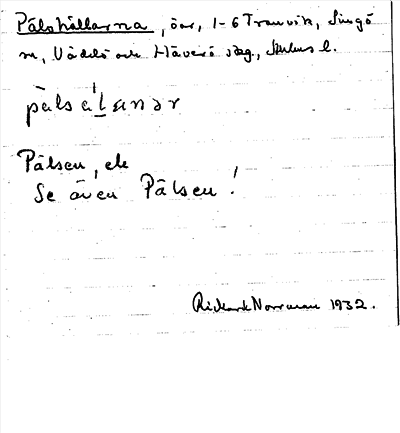 Pålshällarna, öar, 1-6 Tranvik, Singö
sn, Väddö och Häverö skg, Sthlms l.
pålsälanər
Pålsen, ele
Se även Pålsen!
Rickard Norrman 1932.